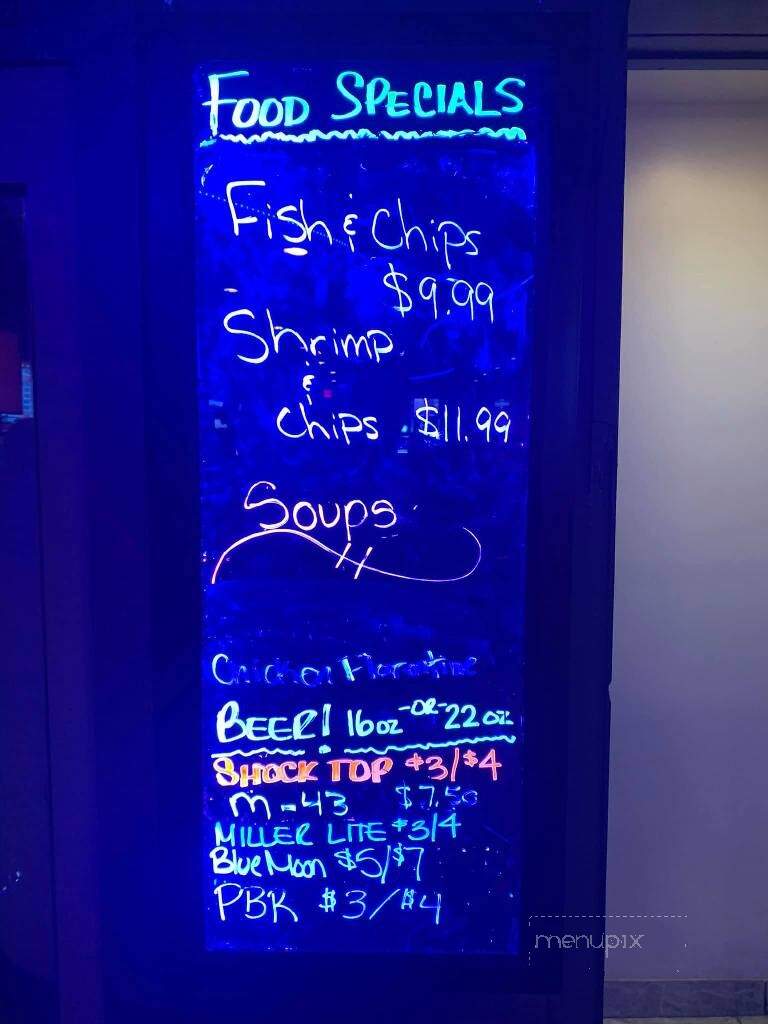 FOOD SPECIALS
Fish & Chips
$9.99
Shrimp
&
Chips $11.99
Soups
Chicken Florentine
BEER! 16oz -OR- 22oz
SHOCK TOP $3/$4
M-43 $7.50
MILLER LITE $3/4
Blue Moon $5/$7
PBR $3/$4
menupix